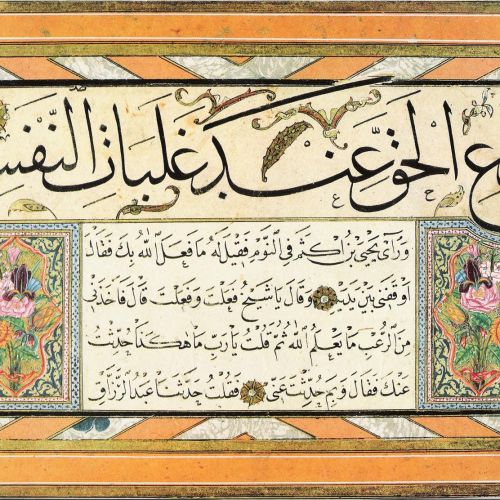 ع الحق عند غلبات النفس
ورأى يحيى بن اكثم في النوم فقيل له ما فعل الله بك فقال
اوقفني بين يديه وقال يا شيخ فعلت وفعلت قال فاخذني
من الرعب ما يعلم الله ثم قلت يا رب ما هكذا حدثت
عنك فقال وبم حدثت عني فقلت حدثنا عبد الرزاق